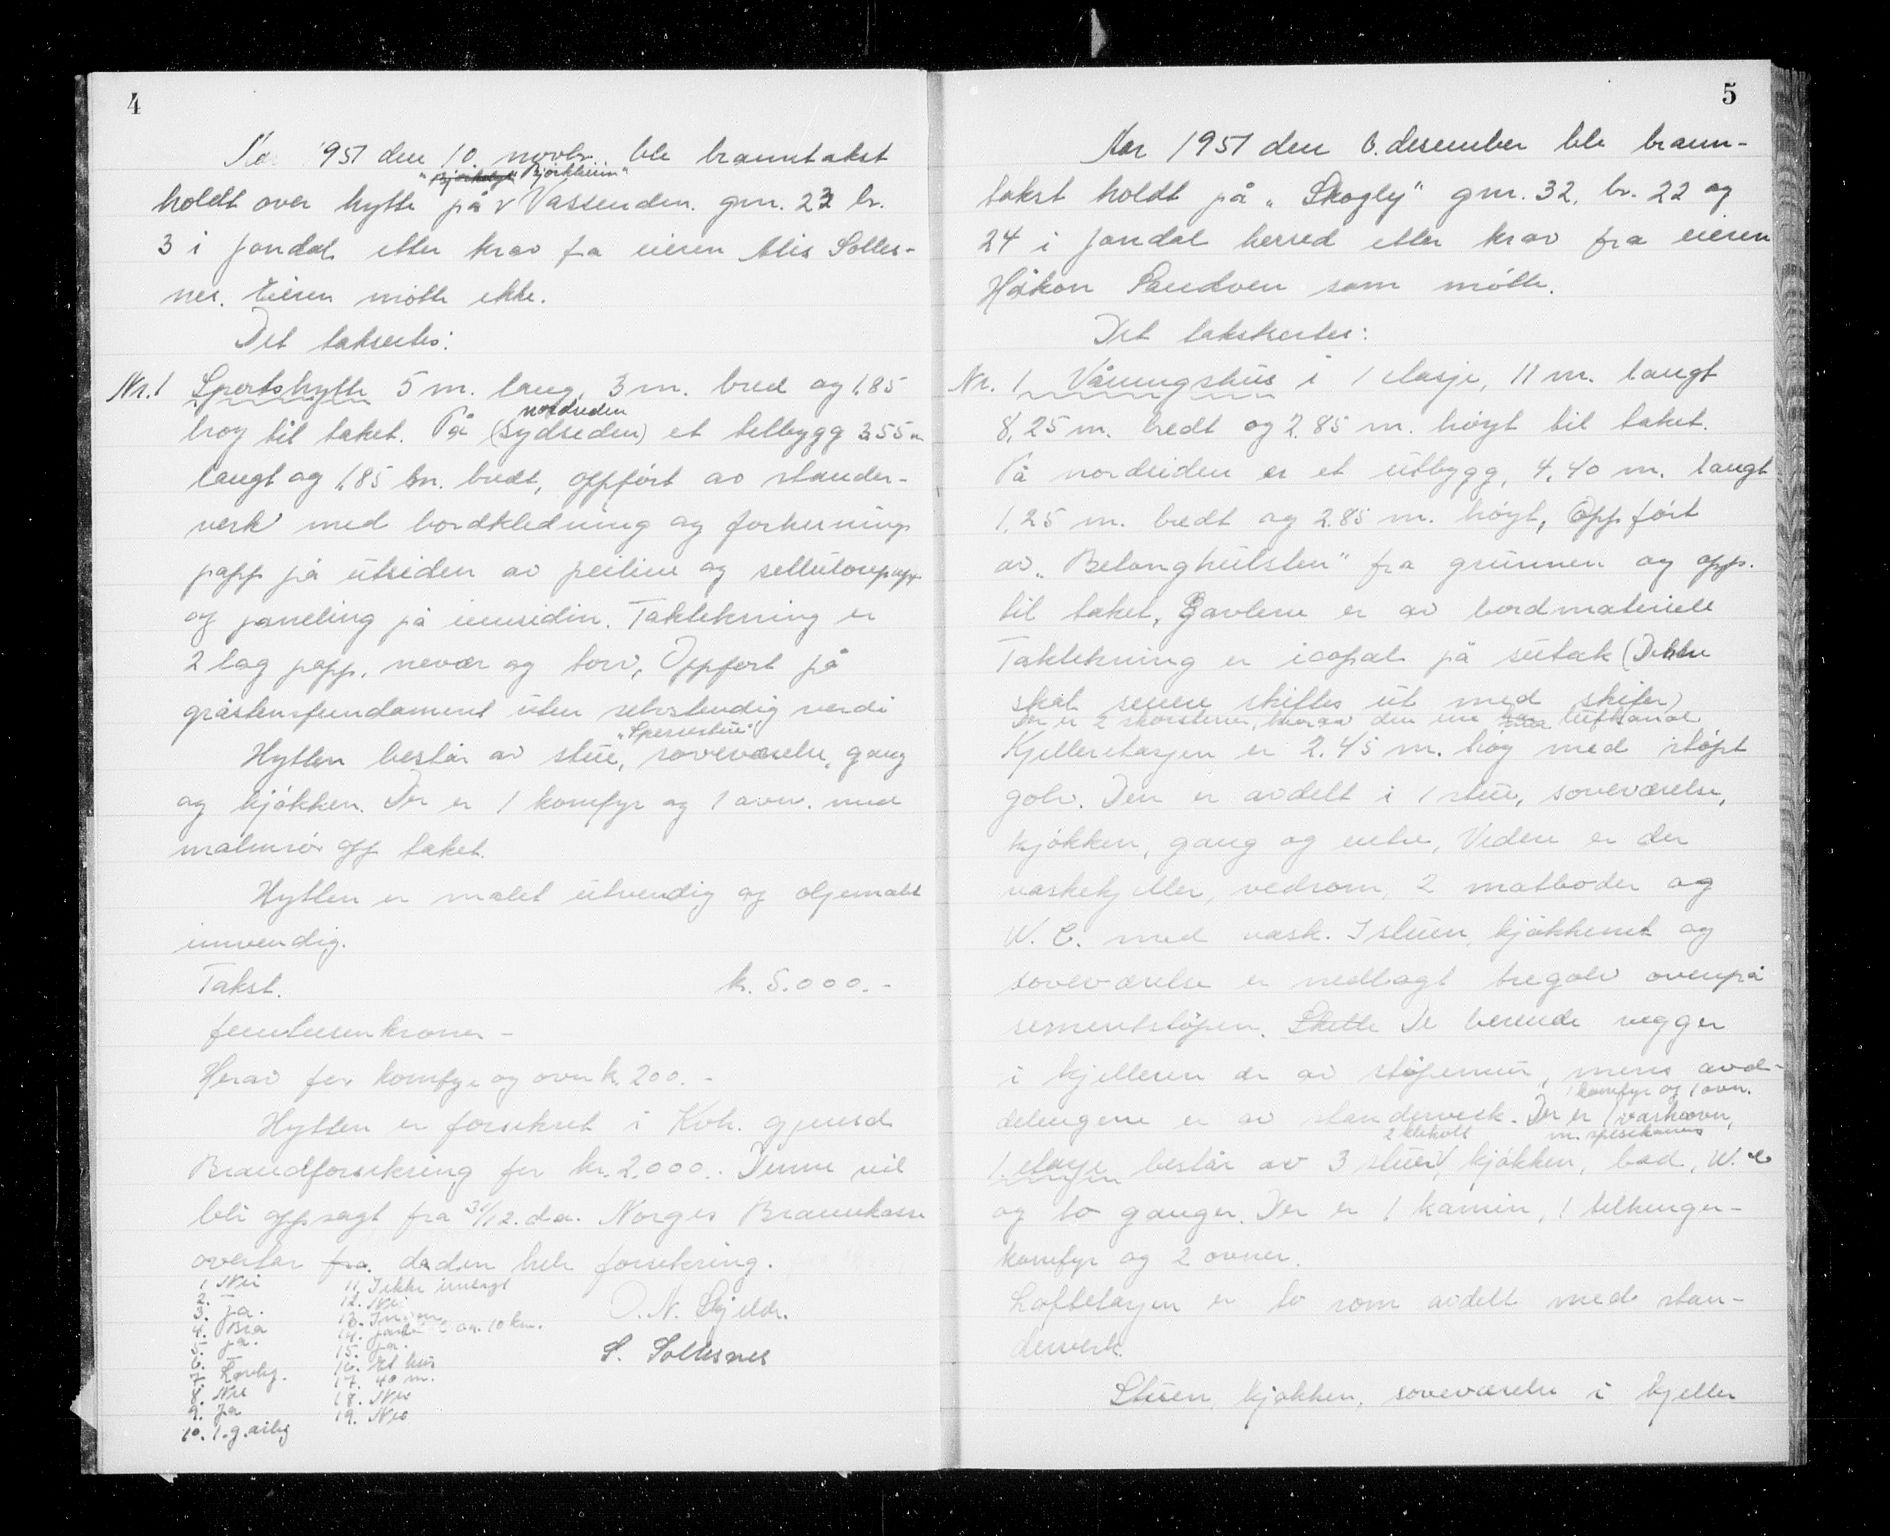 4
1951 den 10. novbr. ble branntakst
"Bjørkheim"
holdt over hytte på Vassenden. gnr. 23 br.
3 i Jondal etter krav fra eieren Alis Solles-
nes. Eieren møtte ikke.
Det taksertes:
Nr. 1 Sportshytte 5 m. lang, 3 m. bred og 1,85
nordsiden
høy til taket. På (sydsiden) et tilbygg 3.55 m
langt og 1,85 m. bredt, oppført av stander-
verk med bordkledning og forhudnings
papp på utsiden av peiline og cellulosepapp
og paneling på innsiden. Taktekning er
2 lag papp, nevær og torv, Oppført på
gråstensfundament uten selvstendig verdi
"Spisestue"
Hytten består av stue, soveværelse, gang
og kjøkken. Der er 1 komfyr og 1 ovn. med
malmrør opp taket.
Hytten er malet utvendig og oljemalt
innvendig.
Takst. kr. 5.000.-
femtusenkroner -
Herav for komfyr og ovn kr. 200. -
Hytten er forsikret i Kvh. gjensd.
Brandforsikring for kr. 2.000.. Denne vil
bli oppsagt fra 31/12. d.a. Norges Brannkasse
overtar fra. da den hele forsikring.
1. Nei
2. —
3. Ja.
4. Bra
5. Ja.
6. —
7. Lovlig.
8. Nei
9. Ja
10. 1. g. årlig
11. Ikke innlagt
12. Nei
13. Ingen
14. Jondal ca. 10 km.
15. Ja.
16. Et hus
17. 40 m.
18. Nei
19. Nei
O. N. Skjeldr.
S. Sollesnes
5
Aar 1951 den 6. desember ble brann-
takst holdt på "Skogly" gnr. 32. br. 22 og
24 i Jondal herred etter krav fra eieren
Håkon Sandven som møtte.
Det takstertes:
Nr. 1 Våningshus i 1 etasje, 11 m. langt
8,25 m. bredt og 2.85 m. høyt til taket.
På nordsiden er et utbygg, 4,40 m. langt
1,25 m. bredt og 2.85 m. høyt, Oppført
av "Betonghulsten" fra grunnen og opp.
til taket, Gavlene er av bordmateriele
Taktekning er icopal på sutak (Dette
skal senere skiftes ut med skifer)
Der er 2 skorstener, hvorav den ene har luftkanal
Kjelleretasjen er 2.45 m. høy med støpt
golv. Den er avdelt i 1 stue, soveværelse,
kjøkken, gang og entre, Videre er der
vaskekjeller, vedrom, 2 matboder og
W. C. med vask. I stuen, kjøkkenet og
soveværelse er nedlagt tregolv ovenpå
sementstøpen. Skille De berende vegger
i kjelleren er av støpemur, mens avd-
1 komfyr og 1 ovn.
delingene er av standerverk. Der er 1 vaskeovn,
2 kleskott m. spisekammers
1. etasje består av 3 stuer, kjøkken, bad, W. C
og to ganger. Der er 1 kamin, 1 tilhenger-
komfyr og 2 ovner.
Loftetasjen er to rom avdelt med stan-
derverk.
Stuen, kjøkken, soveværelse i kjeller